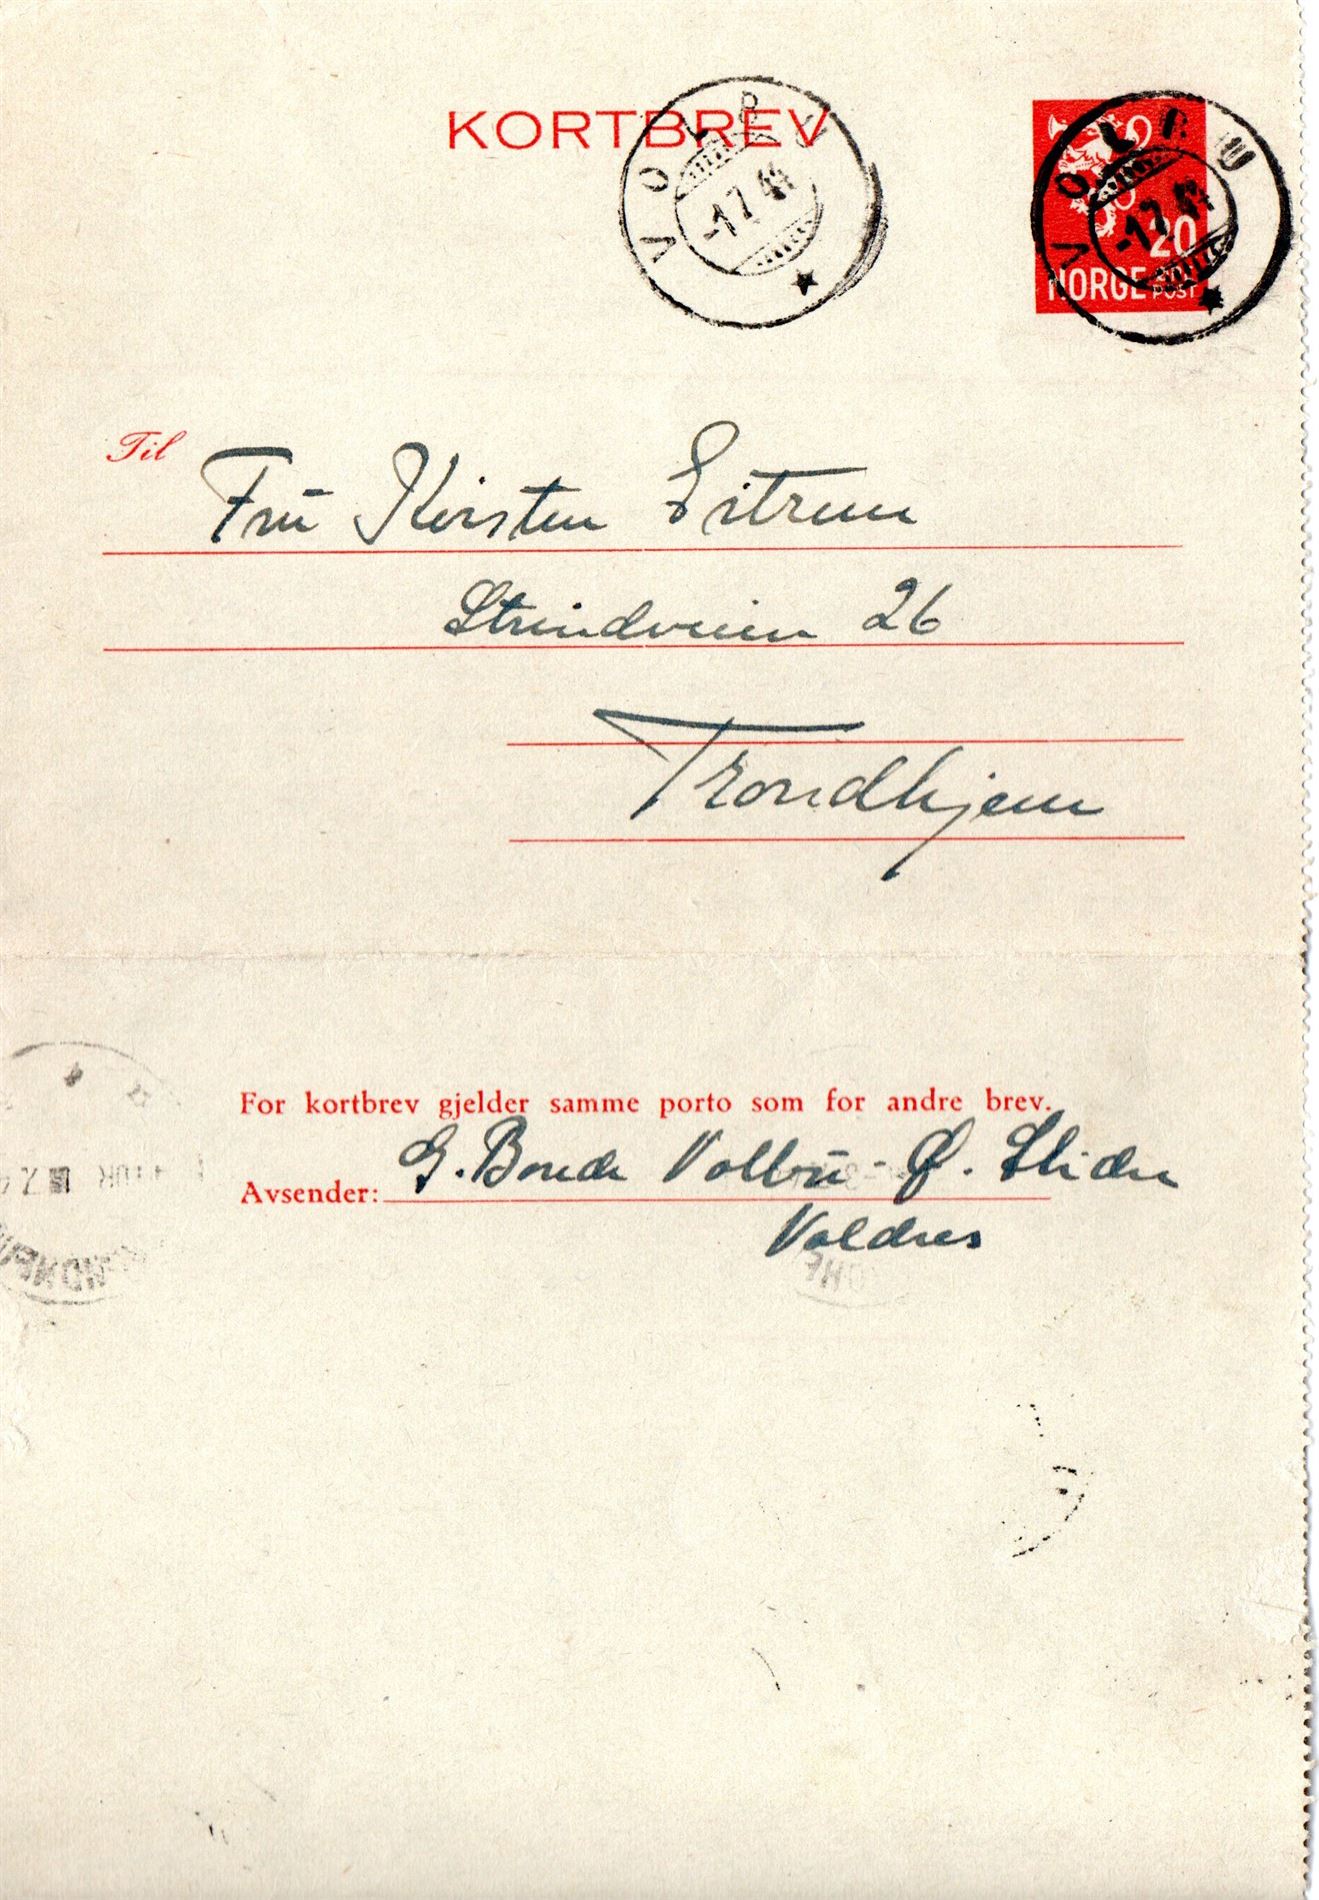 KORTBREV
VOLBU
-1.7.44
VOLBU
-1.7.44
20
NORGE POST
Til Frü Kirsten Eitrem
Strindveien 26
Trondhjem
For kortbrev gjelder samme porto som for andre brev.
Avsender: G. Bonde Volbü - Ø. Slidre
Valdres